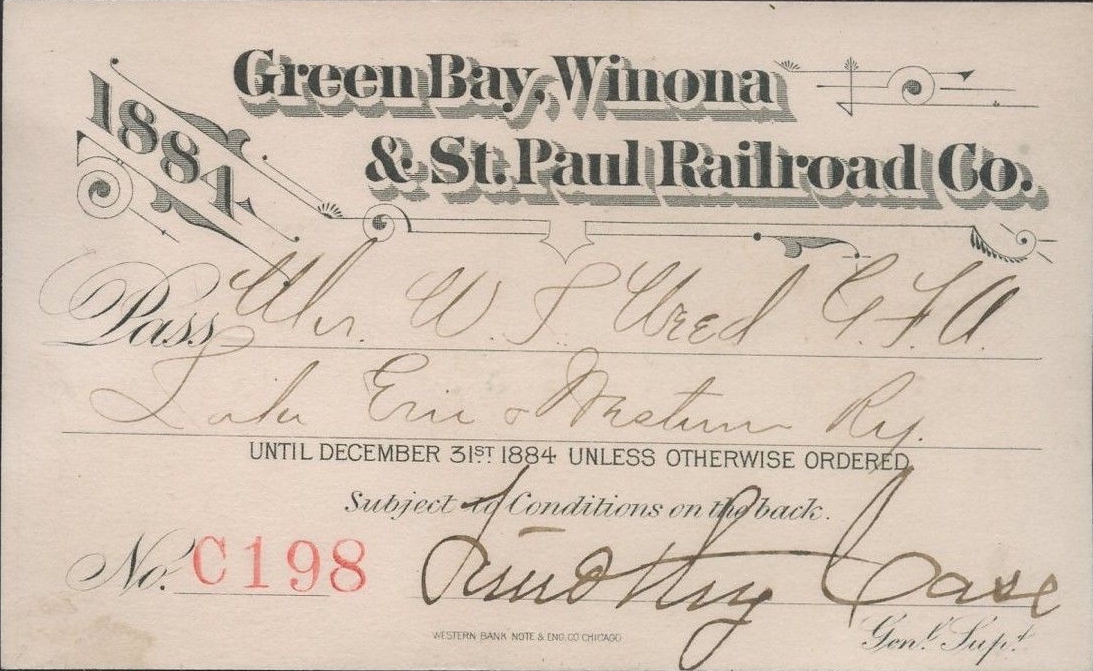 1884
Green Bay, Winona
& St. Paul Railroad Co.
Pass Mr. W. S. Weed G. F. A.
Lake Erie & Western Ry.
UNTIL DECEMBER 31ST 1884 UNLESS OTHERWISE ORDERED
Subject to Conditions on the back.
No. C198 Timothy Case
Genl. Supt.
WESTERN BANK NOTE & ENG. CO CHICAGO